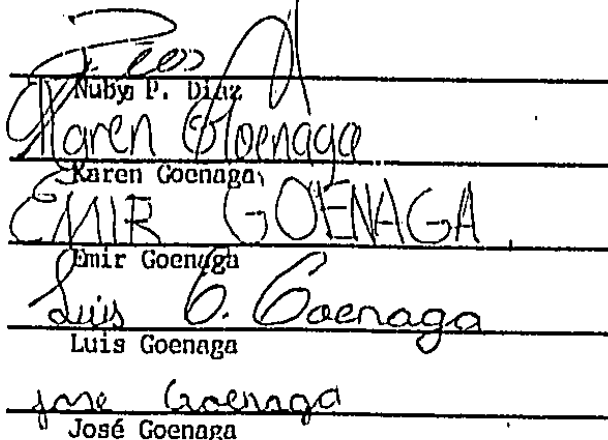 Nuby P. Diaz
Karen Goenaga
Karen Goenaga
EMIR GOENAGA
Emir Goenaga
Luis G. Goenaga
Luis Goenaga
jose Goenaga
José Goenaga